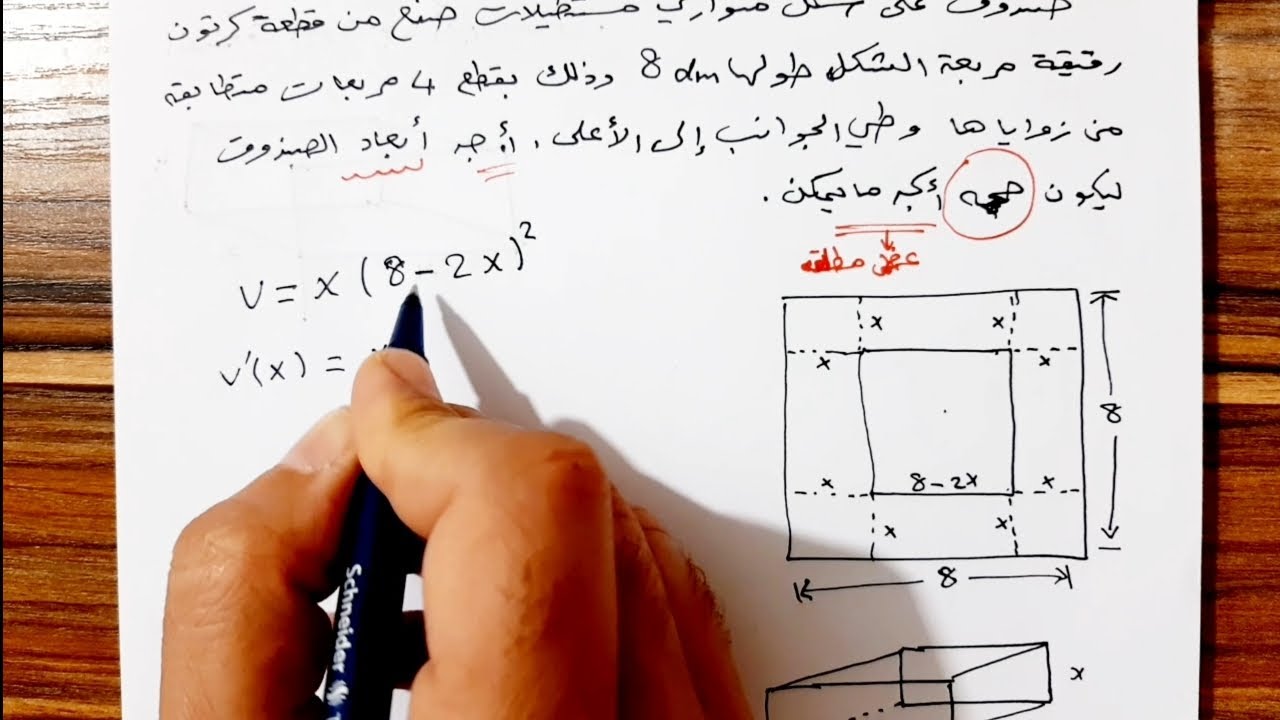 صندوق على شكل متوازي مستطيلات صنع من قطعة كرتون
رقيقة مربعة الشكل طولها 8 dm وذلك بقطع 4 مربعات متطابقة
من زواياها وطي الجوانب إلى الأعلى. أجد أبعاد الصندوق
ليكون حجمه أكبر ما يمكن.
عظمى مطلقة
V = x (8 - 2x)²
V'(x) =
x x
x x
8
x 8-2x x
x x
8
x
Schneider